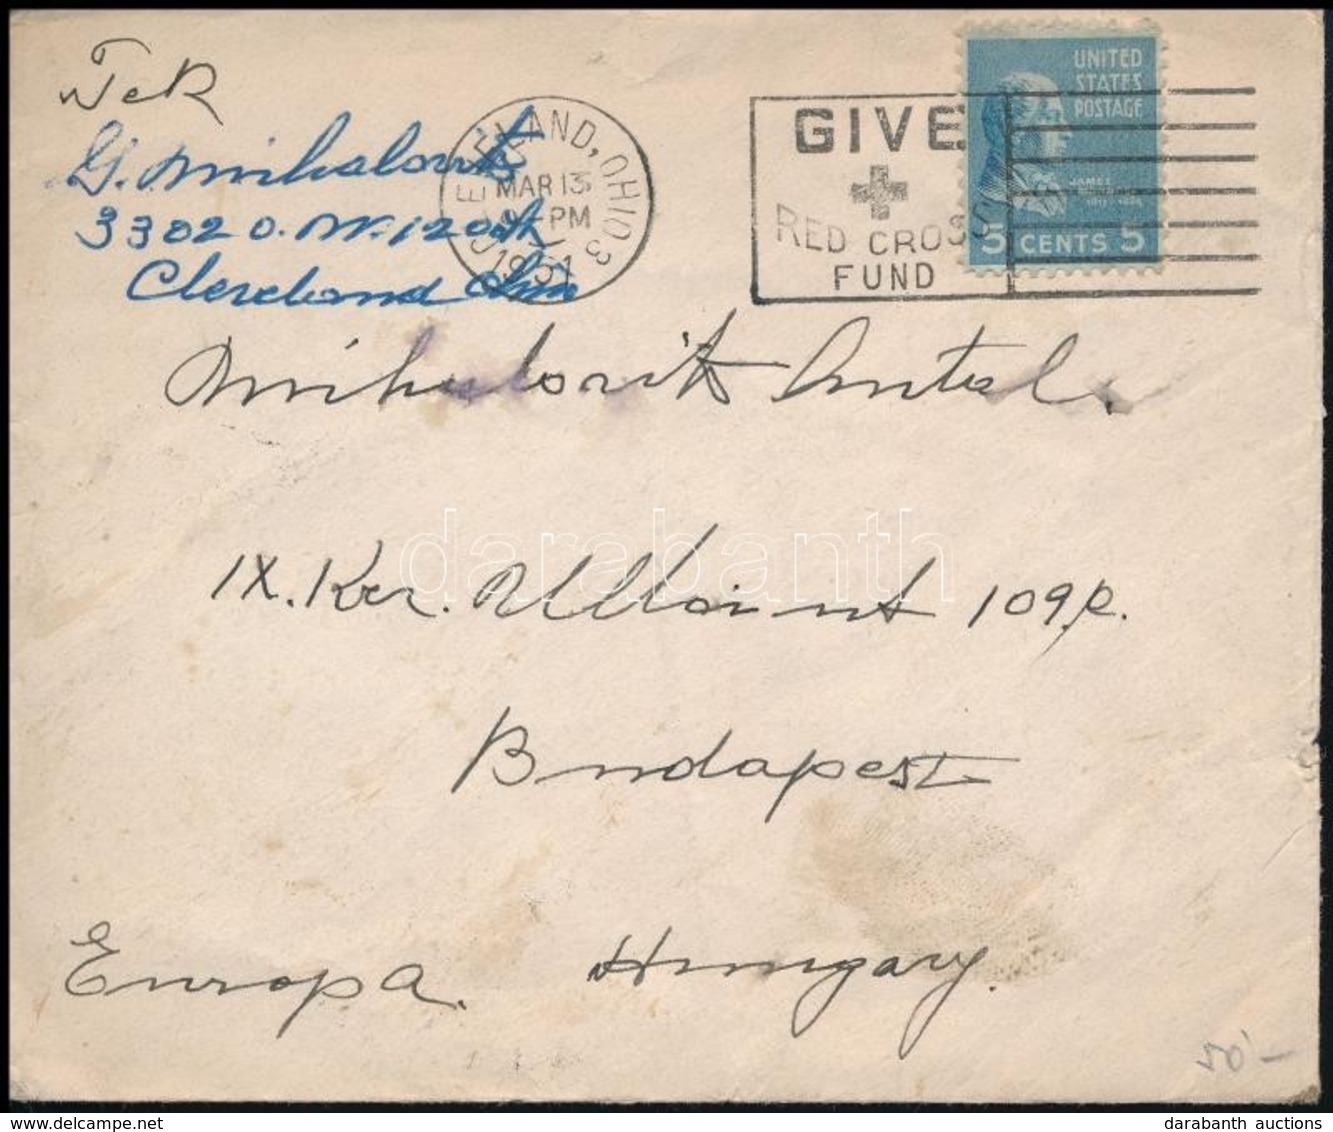 G. Mihalovits
3302 O. W. 120th
Cleveland Ohio
CLEVELAND, OHIO 3
MAR 13
PM
1951
GIVE
RED CROSS
FUND
UNITED
STATES
POSTAGE
JAMES
5 CENTS 5
Mihalovits Antal.
IX. Ker. Üllői ut 109.
Budapest
Europa. Hungary.
50'-
darabanth
darabanth auctions